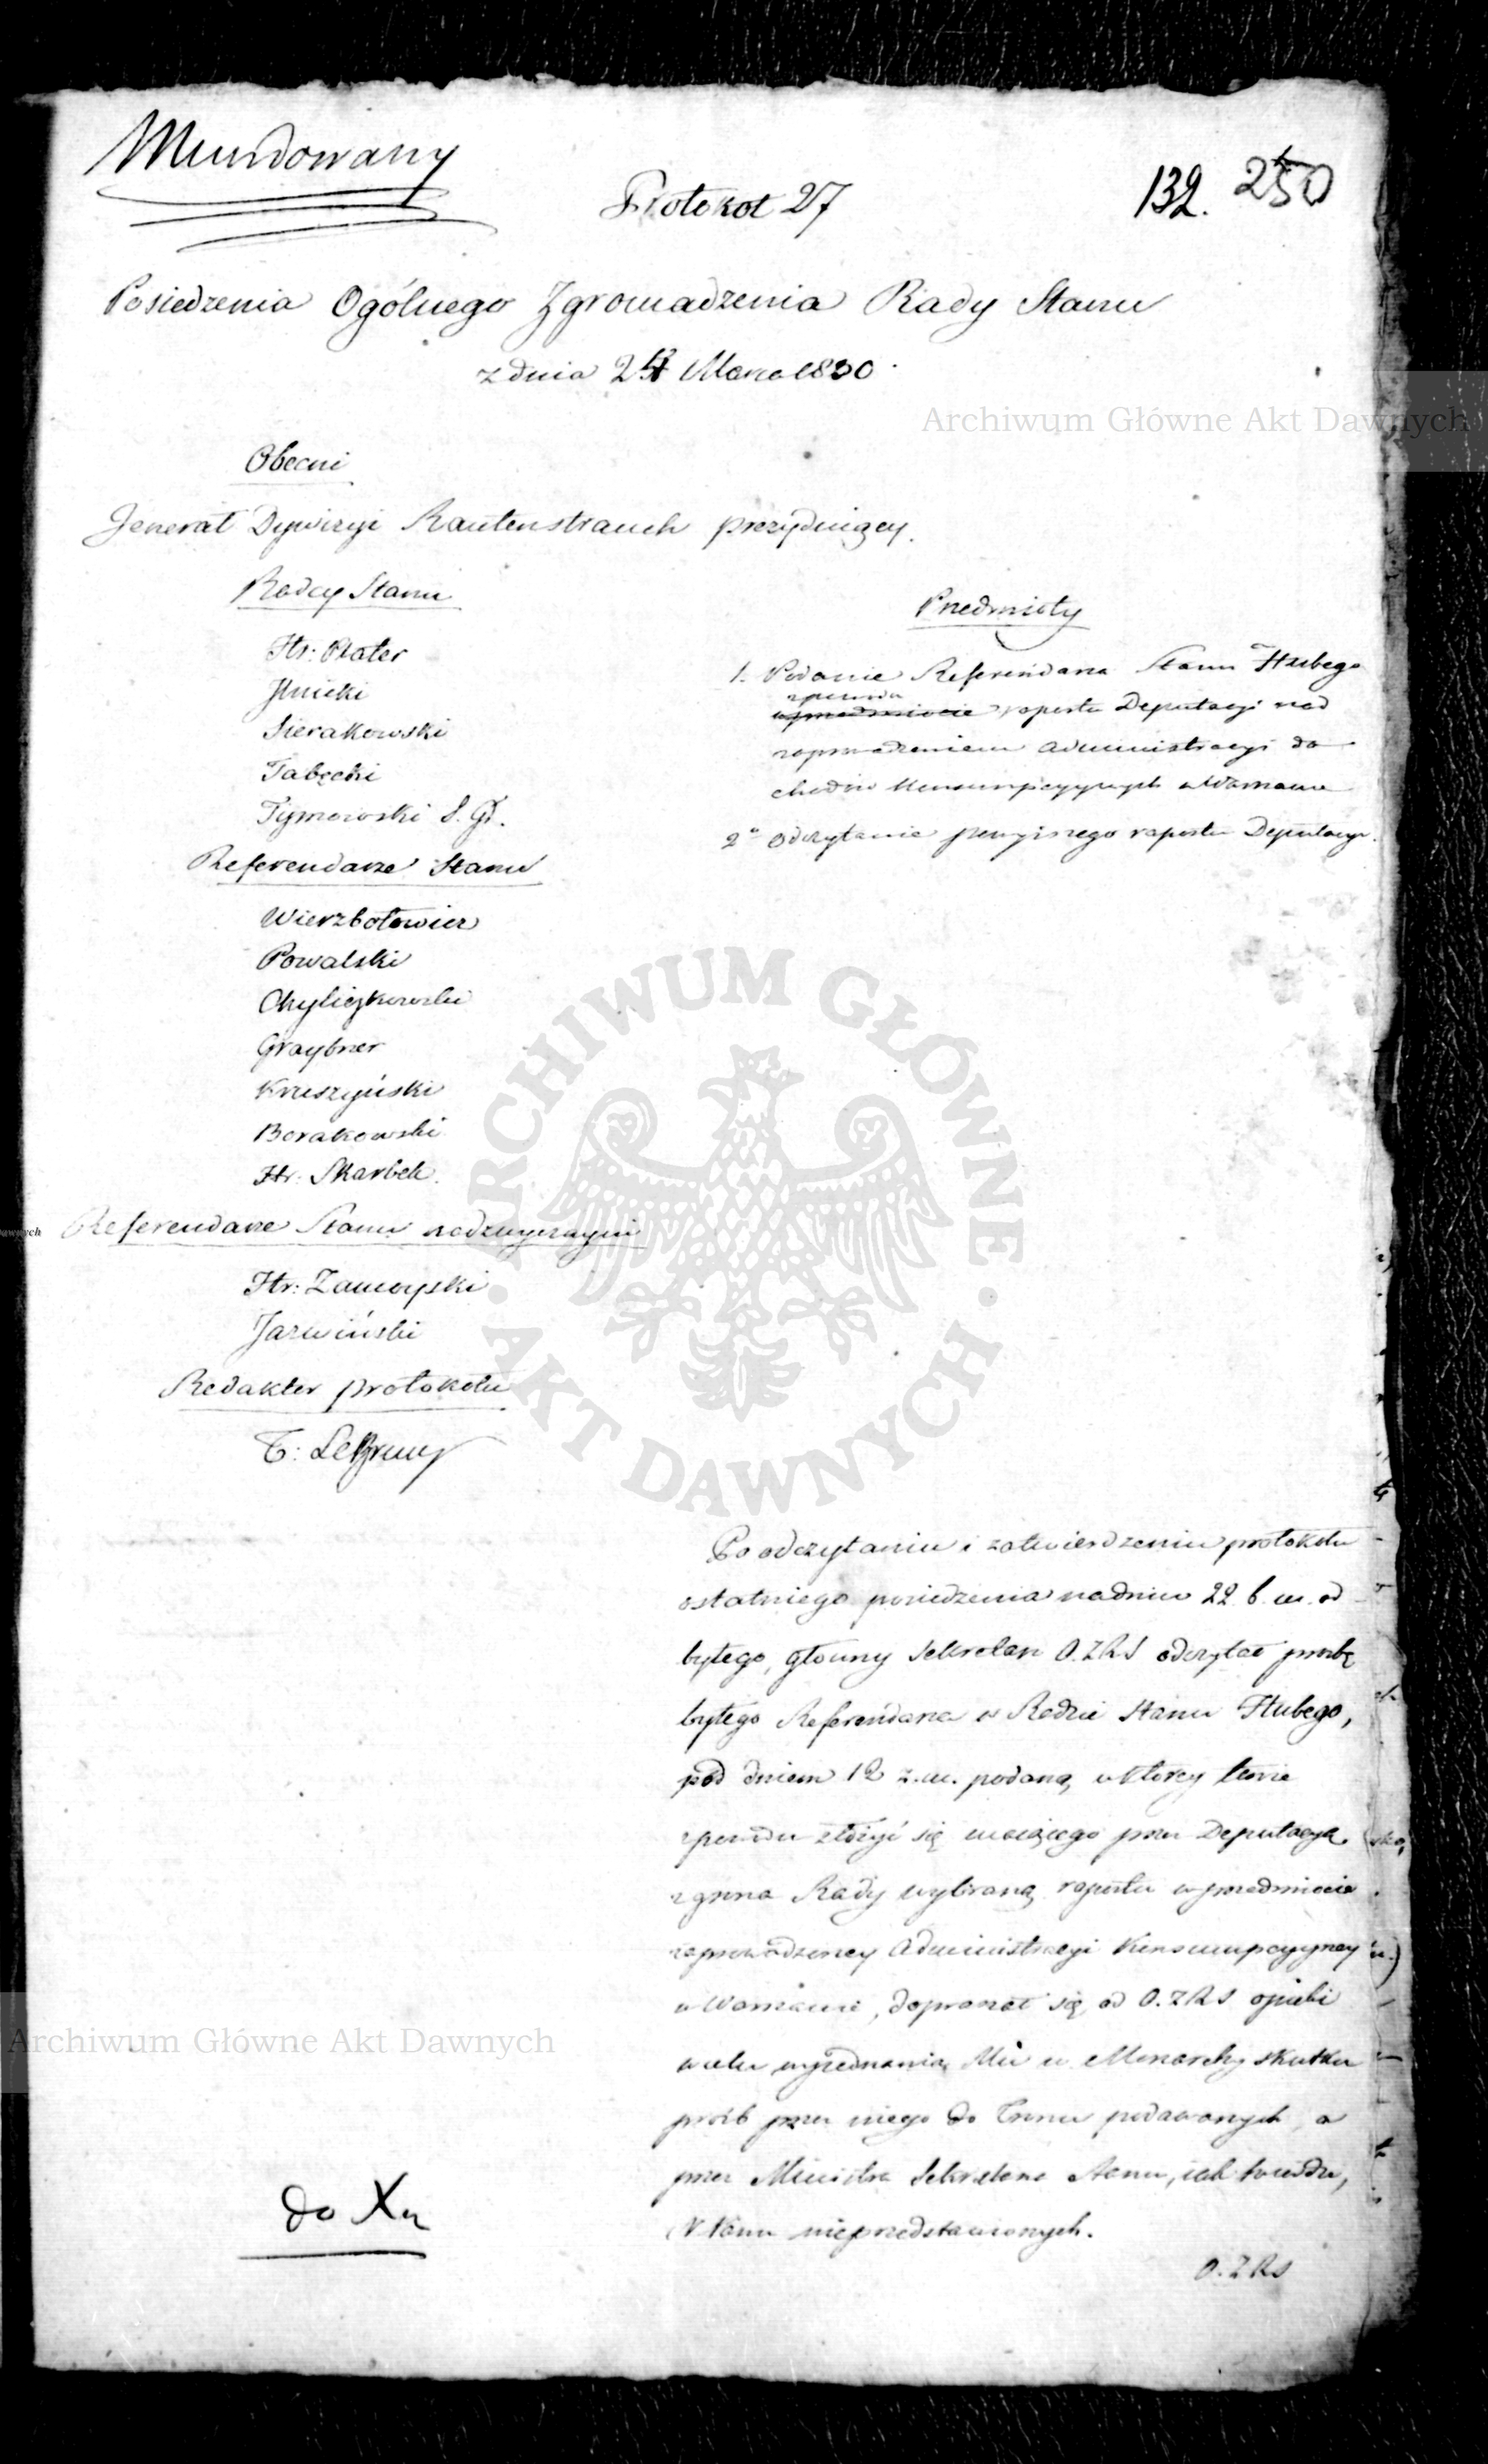 Mundowany
132. 250
Protokoł 27
Posiedzenia Ogólnego Zgromadzenia Rady Stanu
z dnia 24 Marca 1830.
Archiwum Główne Akt Dawnych
Obecni
Jenerał Dywizyi Rautenstrauch prezyduiący.
Radcy Stanu
Hr: Plater
Jlnicki
Sierakowski
Tabęcki
Tymowski S. Gł.
Referendarze Stanu
Wierzbołowicz
Powalski
Chyliczkowski
Graybner
Kruszyński
Borakowski
Hr: Skarbek.
Referendarze Stanu nadzwyczayni
Hr: Zamoyski
Jarwiński
Redaktor protokołu
T: LeBrun
Przedmioty
1. Podanie Referendarza Stanu Hubego
z powodu
w przedmiocie raportu Deputacyi nad
zaprowadzeniem Administracyi do
chodów Konsumpcyynych w Warszawie
2° Odczytanie powyższego raportu Deputacyi.
ARCHIWUM GŁÓWNE · AKT DAWNYCH ·
Po odczytaniu i zatwierdzeniu protokołu
ostatniego posiedzenia na dniu 22 b. m. od
bytego, główny Sekretarz O.Z.R.S odczytał prośbę
byłego Referendarza w Radzie Stanu Hubego,
pod dniem 12 z.m. podaną, w ktorey tenże
z powodu złożyć się maiącego przez Deputacyą
z grona Rady wybraną raportu w przedmiocie
zaprowadzoney Administracyi Konsumpcyyney
w Warszawie, doprasza się od O.Z.R.S opieki
w celu wyjednania Mu u Monarchy skutku
próśb przez niego do Tronu podawanych a
przez Ministra Sekretarza Stanu, iak twierdzi,
N Panu nieprzedstawionych.
O.Z.R.S
Archiwum Główne Akt Dawnych
do Xu